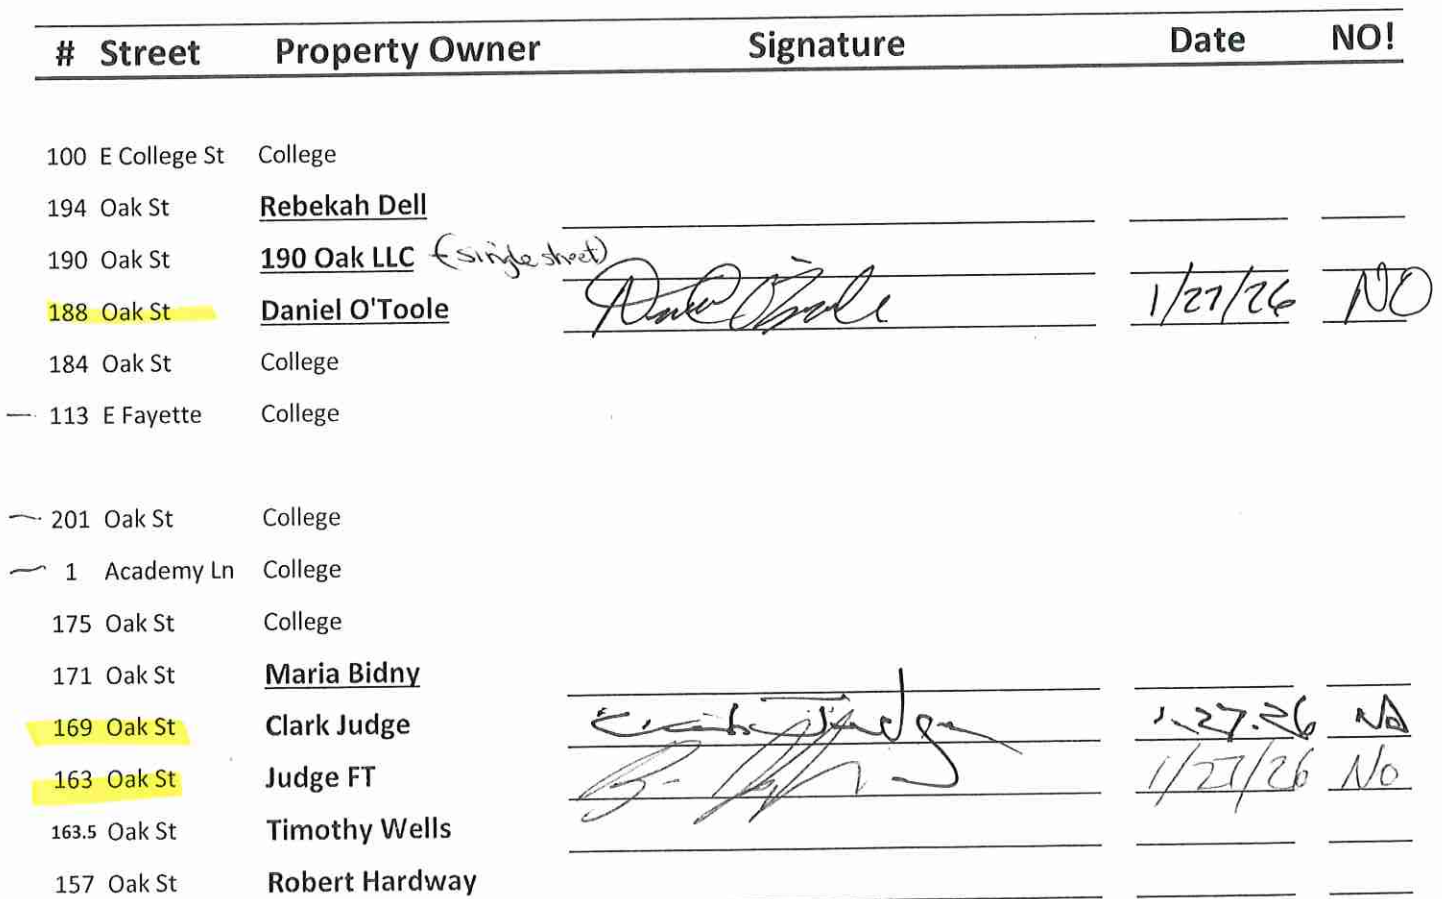 # Street Property Owner Signature Date NO!
100 E College St College
194 Oak St Rebekah Dell
190 Oak LLC (single sheet)
190 Oak St
188 Oak St Daniel O'Toole Daniel O'Toole 1/27/26 NO
184 Oak St College
113 E Fayette College
201 Oak St College
1 Academy Ln College
175 Oak St College
171 Oak St Maria Bidny
169 Oak St Clark Judge Clark Judge 1.27.26 NO
163 Oak St Judge FT 1/27/26 No
163.5 Oak St Timothy Wells
157 Oak St Robert Hardway